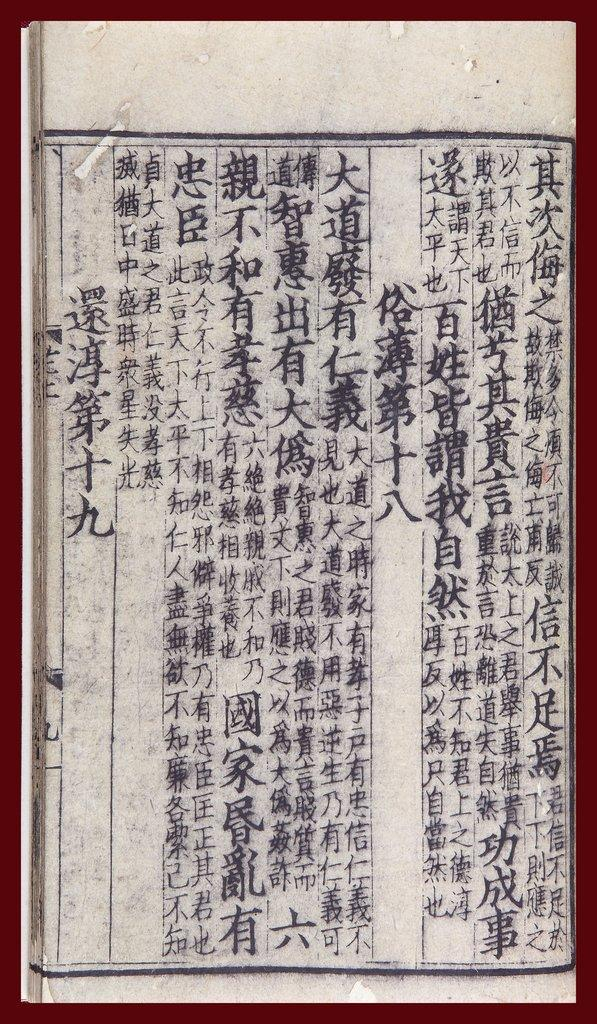 其次侮之禁多令煩不可歸誠故欺侮之侮亡甫反信不足焉君信不足於下下則應之
以不信而欺其君也猶兮其貴言說太上之君舉事猶貴重於言恐離道失自然功成事
遂謂天下太平也百姓皆謂我自然百姓不知君上之德淳厚反以爲只自當然也
俗薄第十八
大道廢有仁義大道之時家有孝子戶有忠信仁義不見也大道廢不用惡逆生乃有仁義可
傳道智惠出有大僞智惠之君賤德而貴言賤質而貴文下則應之以爲大僞姦詐六
親不和有孝慈六絕絕親戚不和乃有孝慈相收養也國家昏亂有
忠臣政令不行上下相怨邪僻爭權乃有忠臣匡正其君也此言天下太平不知仁人盡無欲不知廉各己不知
貞大道之君仁義没孝慈滅猶日中盛時衆星失光
還淳第十九
九